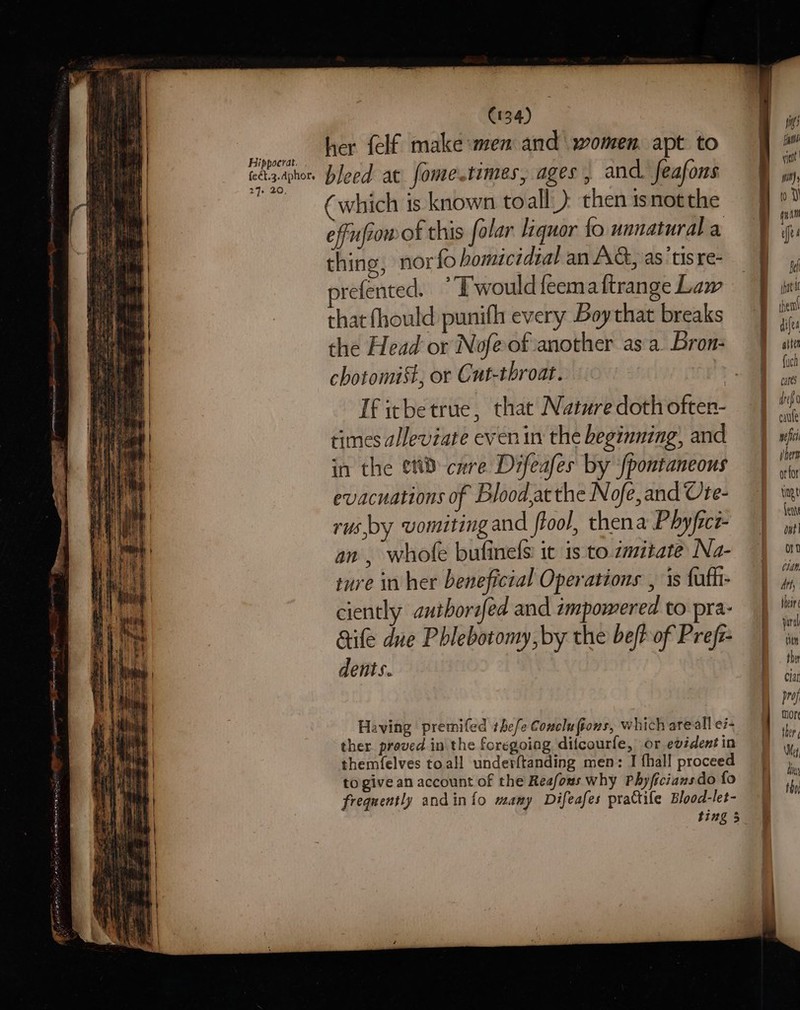 (134)
her ſelf make men and women apt to
Hippocrat.
ſect.3.Aphor.
27. 20.
bleed at ſome-times, ages, and ſeaſons
(which is known to all) then is not the
effuſion of this ſolar liquor ſo unnatural a
thing, nor ſo homicidial an Act, as 'tis re-
preſented. 'Twould ſeem a ſtrange Law
that ſhould puniſh every Boy that breaks
the Head or Noſe of another as a Bron-
chotomiſt, or Cut-throat.
If it be true, that Nature doth often-
times alleviate even in the beginning, and
in the end cure Diſeaſes by ſpontaneous
evacuations of Blood, at the Noſe, and Ute-
rus, by vomiting and ſtool, then a Phyſici-
an, whoſe buſineſs it is to imitate Na-
ture in her beneficial Operations, is ſuffi-
ciently authoriſed and impowered to pra-
ctiſe due Phlebotomy, by the beſt of Preſi-
dents.
Having premiſed theſe Concluſions, which are all ei-
ther proved in the foregoing diſcourſe, or evident in
themſelves to all underſtanding men: I ſhall proceed
to give an account of the Reaſons why Phyſicians do ſo
frequently and in ſo many Diſeaſes practiſe Blood-let-
ting;